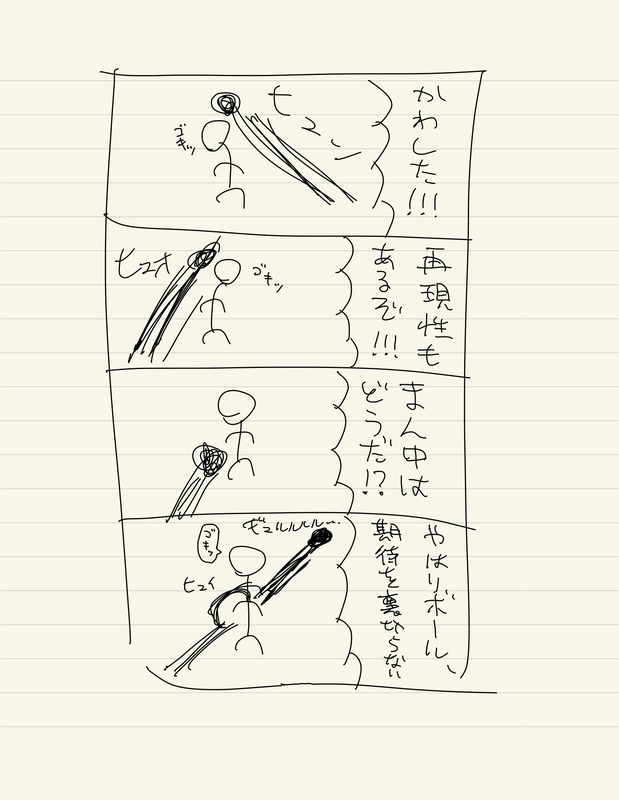 かわした!!!
ヒュン
ゴキッ
再現性も
あるぞ!!!
ゴキッ
ヒュオ
まん中は
どうだ!?
やはりボール、
期待を裏切らない
ギュルルルル…
ゴキッ
ヒュイ